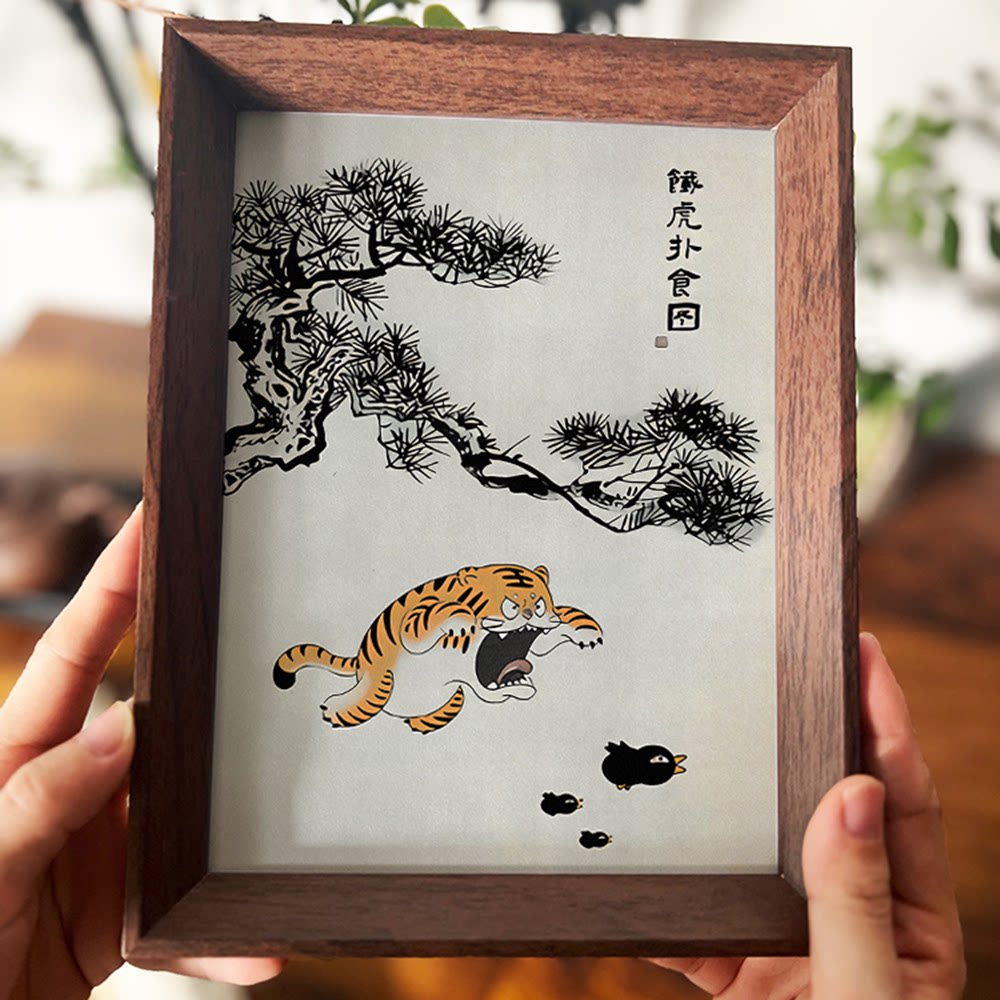 餓虎扑食图